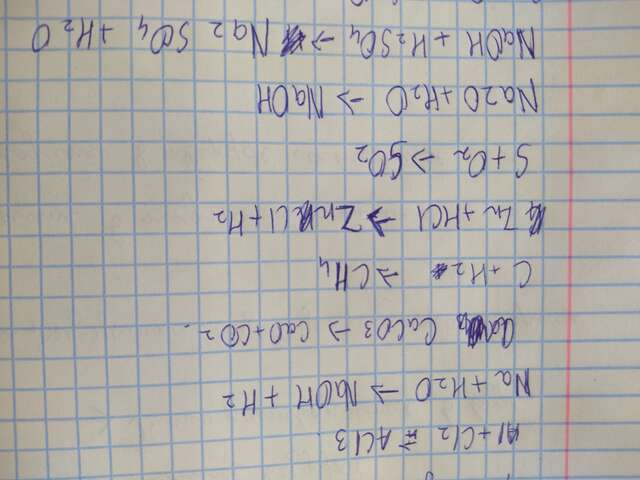 Al + Cl2 ⇄ ACl3
Na + H2O → NaOH + H2
CaCO3 → CaO + CO2.
C + H2 → CH4
Zn + HCl → ZnCl + H2
S + O2 → SO2
Na2O + H2O → NaOH
NaOH + H2SO4 → Na2SO4 + H2O